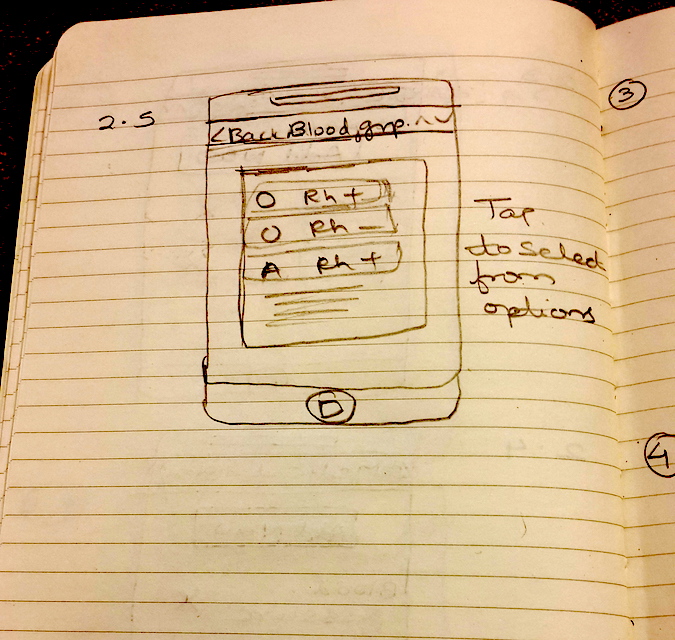 2.5
<Back Blood grp. ^ v
O Rh +
O Rh –
A Rh +
Tap
to select
from
options
3
4